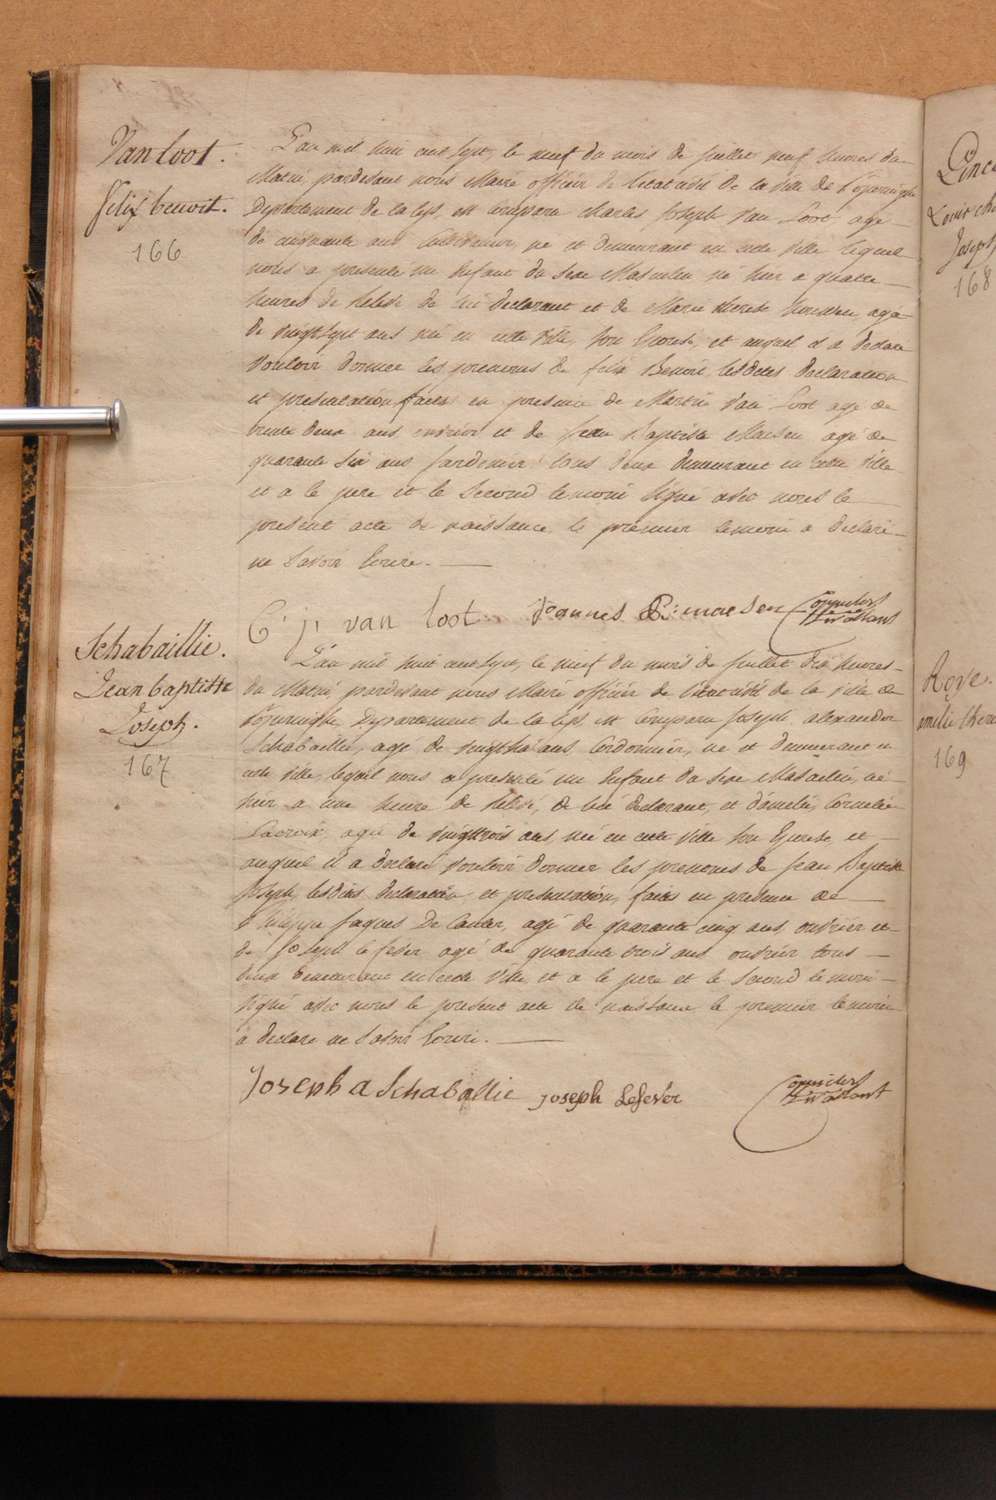 Van Loot.
felix benoit.
166
L'an mil huit cent sept, le neuf du mois de juillet neuf heures du
Matin, pardevant nous Maire officier de l'etat civil de la ville de Poperinghe
Departement de la Lys, est Comparu Charles Joseph Van Loot agé
de cinquante ans, né et demeurant en cette ville lequel
nous a presenté un Enfant du Sexe Masculin né hier a quatre
heures de de lui declarant et de Marie therese agée
de vingt sept ans née en cette ville, Son Epouse, et auquel il a declaré
Vouloir donner les prenoms de felix Benoit, lesdites declaration
et presentation faites en presence de Martin Van Loot agé de
trente deux ans ouvrier et de jean Baptiste Maesen agé de
quarante Six ans tous deux demeurant en cette ville
et a le pere et le Second temoin Signé avec nous le
present acte de naissance le premier temoin a declaré
ne Savoir Ecrire.
C: j: van loot Joannes B: maesen
Schabaillie.
Jean baptiste
Joseph.
167
L'an mil huit cent sept, le neuf du mois de juillet dix heures
du Matin, pardevant nous Maire officier de l'etat civil de la ville de
Poperinghe Departement de la Lys est Comparu Joseph alexander
Schabaillie, agé de ans Cordonnier, né et demeurant en
cette ville, lequel nous a presenté un Enfant du Sexe Masculin, né
hier a une heure de de lui declarant, et d'amelie Cornelie
Lacroix agée de vingt trois ans née en cette ville Son Epouse et
auquel il a declaré Vouloir donner les prenoms de Jean Baptiste
Joseph, lesdites declaration et presentation, faites en presence de
Philippe Jaques De agé de quarante cinq ans ouvrier et
de Joseph lefever agé de quarante trois ans ouvrier tous
deux demeurant en cette Ville, et a le pere et le Second temoin
Signé avec nous le present acte de naissance le premier temoin
a declaré ne Savoir Ecrire.
Joseph A Schaballie joseph Lefever
Louis
Joseph
168
Roye.
amelie there
169